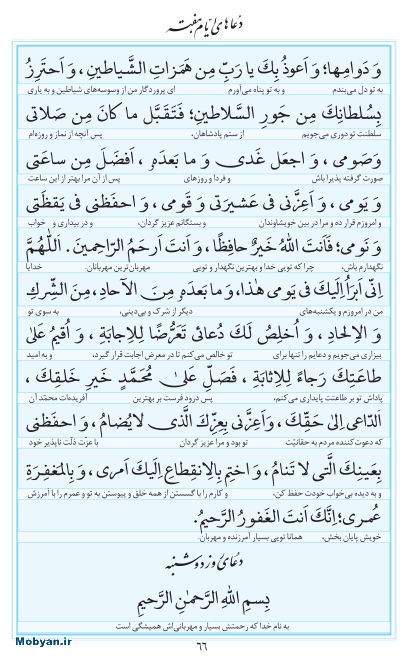 دعاهای ایام هفته
وَ دَوامِها؛ وَ اَعوذُ بِكَ يا رَبِّ مِن هَمَزاتِ الشَّياطينِ، وَ اَحتَرِزُ
به تو دل می‌بندم و به تو پناه می‌آورم ای پروردگار من از وسوسه‌های شیاطین و به یاری
بِسُلطانِكَ مِن جَورِ السَّلاطينِ؛ فَتَقَبَّل ما كانَ مِن صَلاتي
سلطنت تو دوری می‌جویم از ستم پادشاهان، پس آنچه از نماز و روزه‌ام
وَصَومي، وَ اجعَل غَدي وَ ما بَعدَهُ، اَفضَلَ مِن ساعَتي
صورت گرفته پذیرا باش و فردا و روزهای پس از آن مرا بهتر از این ساعت
وَ يَومي، وَ اَعِزَّني في عَشيرَتي وَ قَومي، وَ احفَظني في يَقظَتي
و امروزم قرار ده و مرا در بین خویشاوندان و بستگانم عزیز گردان، و در بیداری و خواب
وَ نَومي؛ فَاَنتَ اللهُ خَيرٌ حافِظًا، وَ اَنتَ اَرحَمُ الرّاحِمينَ. اَللّٰهُمَّ
نگهدارم باش، چرا که تویی خدا و بهترین نگهدار و تویی مهربان‌ترین مهربانان. خدایا
اِنّي اَبرَأُ اِلَيكَ في يَومي هٰذا، وَ ما بَعدَهُ مِنَ الآحادِ، مِنَ الشِّركِ
من در امروزم و یکشنبه‌های دیگر از شرک و بی‌دینی، به سوی تو
وَ الاِلحادِ، وَ اُخلِصُ لَكَ دُعائي تَعَرُّضًا لِلاِجابَةِ، وَ اُقيمُ عَلىٰ
بیزاری می‌جویم و دعایم را تنها برای تو خالص می‌کنم تا در معرض اجابت قرار گیرد، و به امید
طاعَتِكَ رَجاءً لِلاِثابَةِ، فَصَلِّ عَلىٰ مُحَمَّدٍ خَيرِ خَلقِكَ،
پاداش تو بر طاعتت پایداری می‌کنم، پس درود فرست بر بهترین آفریدهات محمّد آن
اَلدّاعي اِلىٰ حَقِّكَ، وَاَعِزَّني بِعِزِّكَ الَّذي لايُضامُ، وَ احفَظني
که دعوت‌کننده مردم به حقانیّت تو بود و مرا عزیز گردان با عزت ذلّت ناپذیر خود
بِعَينِكَ الَّتي لا تَنامُ، وَ اختِم بِالاِنقِطاعِ اِلَيكَ اَمري، وَ بِالمَغفِرَةِ
و به دیده بی‌خواب خودت حفظ کن، و کارم را با گسستن از همه خلق و پیوستن به تو و عمرم را با آمرزش
عُمري؛ اِنَّكَ اَنتَ الغَفورُ الرَّحيمُ.
خویش پایان بخش، همانا تویی بسیار آمرزنده و مهربان.
دعای روز دوشنبه
بِسمِ اللهِ الرَّحمٰنِ الرَّحيمِ
به نام خدا که رحمتش بسیار و مهربانی‌اش همیشگی است
۶۶
Mobyan.ir